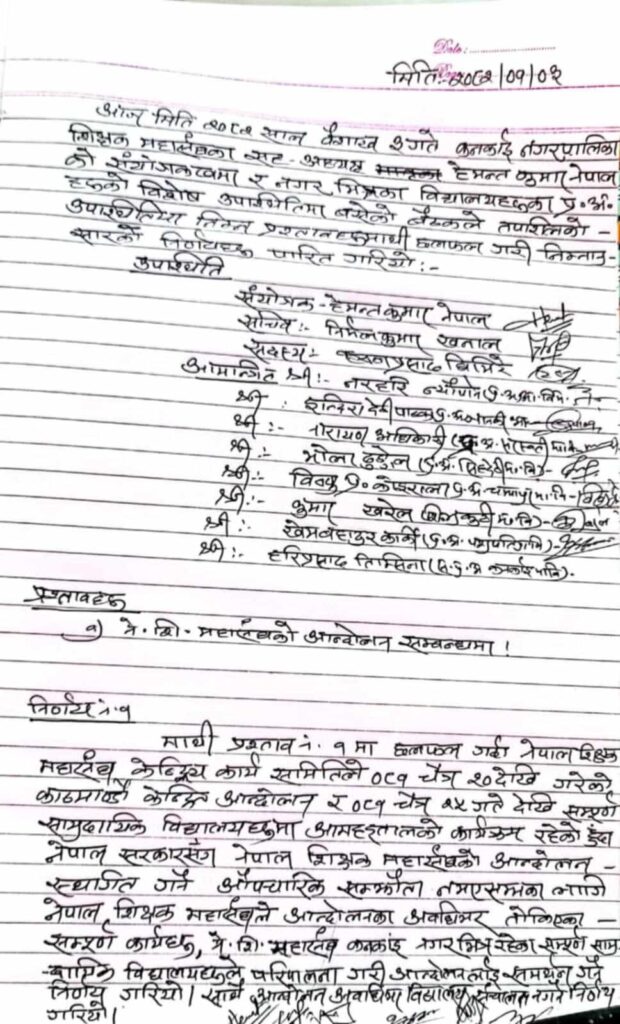 Date:
मितिः- २०८२/०१/०३
आज मिति २०८२ साल बैशाख ३ गते कनकाई नगरपालिका
शिक्षक महासंघका सह-अध्यक्ष हेमन्त कुमार नेपाल
को संयोजकत्वमा र नगर भित्रका विद्यालयहरूका प्र.अ.
हरूको विशेष उपस्थितिमा बसेको बैठकले तपशिलको -
उपस्थितिमा निम्न प्रस्तावहरूमाथी छलफल गरी निम्नानु-
सारको निर्णयहरू पारित गरियो:-
उपस्थिति
संयोजक - हेमन्तकुमार नेपाल
सचिव :- निर्मलकुमार खनाल
सदस्य :- प्रसाद घिमिरे
आमान्त्रित श्री:- नरहरि न्यौपाने
श्री : इन्दिरा देवी
श्री :- नारायण अधिकारी
श्री :- भोला ढुङ्गेल
श्री :- विष्णु प्र.
श्री :- कुमार खरेल
श्री :- खेमबहादुर कार्की
श्री :- हरिप्रसाद तिम्सिना
प्रस्तावहरू
१) ने. शि. महासंघको आन्दोलन सम्बन्धमा ।
निर्णय नं. १
माथी प्रस्ताव नं. १ मा छलफल गर्दा नेपाल शिक्षक
महासंघ केन्द्रिय कार्य समितिले ०८१ चैत्र २० देखि गरेको
काठमाण्डौं केन्द्रित आन्दोलन र ०८१ चैत्र २५ गते देखि सम्पूर्ण
सामुदायिक विद्यालयहरूमा आमहड्तालको कार्यक्रम रहेको हुंदा
नेपाल सरकारसंग नेपाल शिक्षक महासंघको आन्दोलन -
स्थगित गर्ने औपचारिक सम्झौता नभएसम्मका लागि
नेपाल शिक्षक महासंघले आन्दोलनका अवधिभर तोकिएका -
सम्पूर्ण कार्यहरू, ने. शि. महासंघ कनकाई नगर भित्र रहेका सम्पूर्ण सामु
-दायिक विद्यालयहरूले परिपालना गरी आन्दोलनलाई समर्थन गर्ने
निर्णय गरियो। साथै आन्दोलन अवधिमा विद्यालय संचालन नगर्ने निर्णय
गरियो।